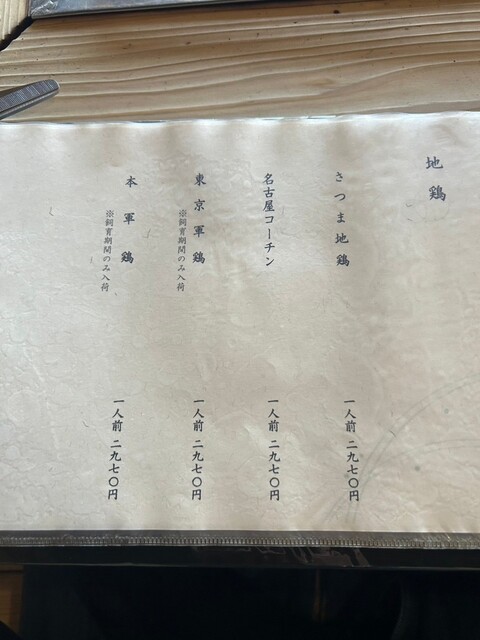 地鶏
さつま地鶏
一人前 二九七〇円
名古屋コーチン
一人前 二九七〇円
東京軍鶏
※飼育期間のみ入荷
一人前 二九七〇円
本軍鶏
※飼育期間のみ入荷
一人前 二九七〇円